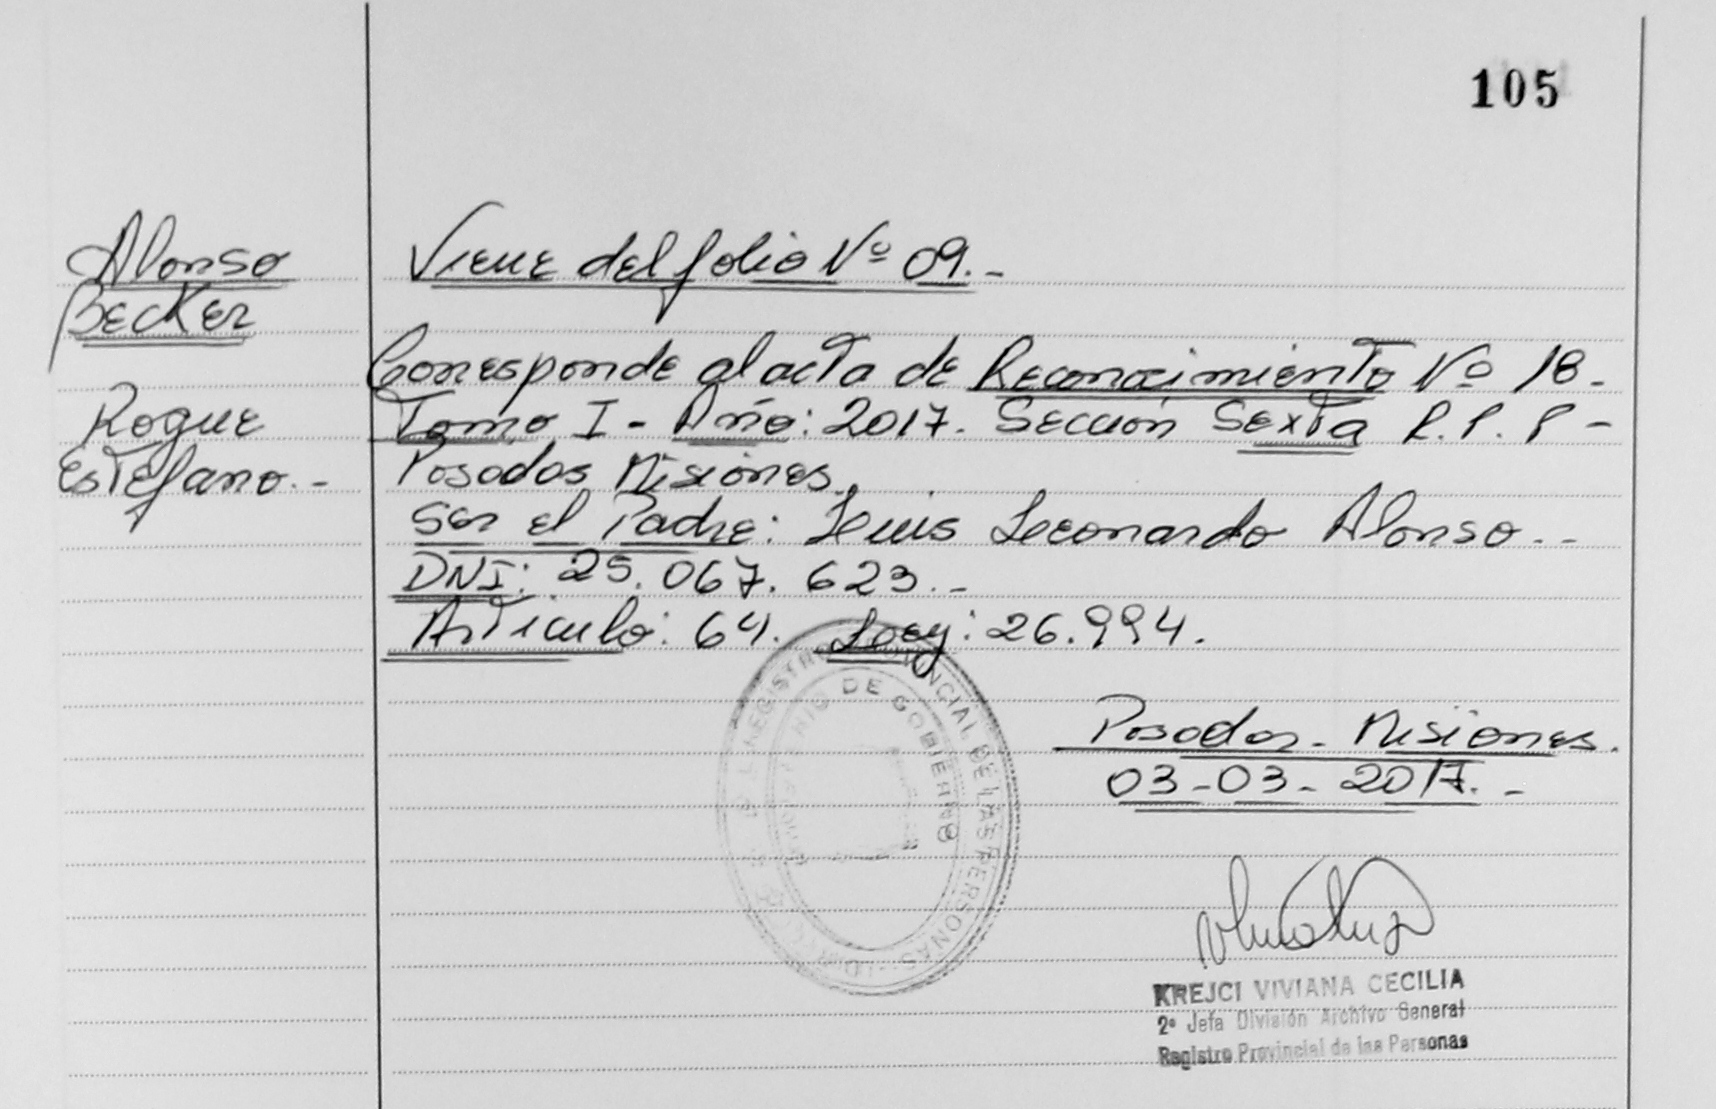 105
Alonso
Becker
Roque
Estefano.-
Viene del folio Nº 09.-
Corresponde al acta de Reconocimiento Nº 18-
Tomo I - Año: 2017. Sección Sexta R.P.P-
Posadas Misiones.
Ser el Padre: Luis Leonardo Alonso.-
DNI: 25.067.623.-
Articulo: 64. Ley: 26.994.
Posadas - Misiones.
03-03-2017.-
REGISTRO PROVINCIAL DE LAS PERSONAS
DE GOBIERNO
KREJCI VIVIANA CECILIA
2º Jefa División Archivo General
Registro Provincial de las Personas